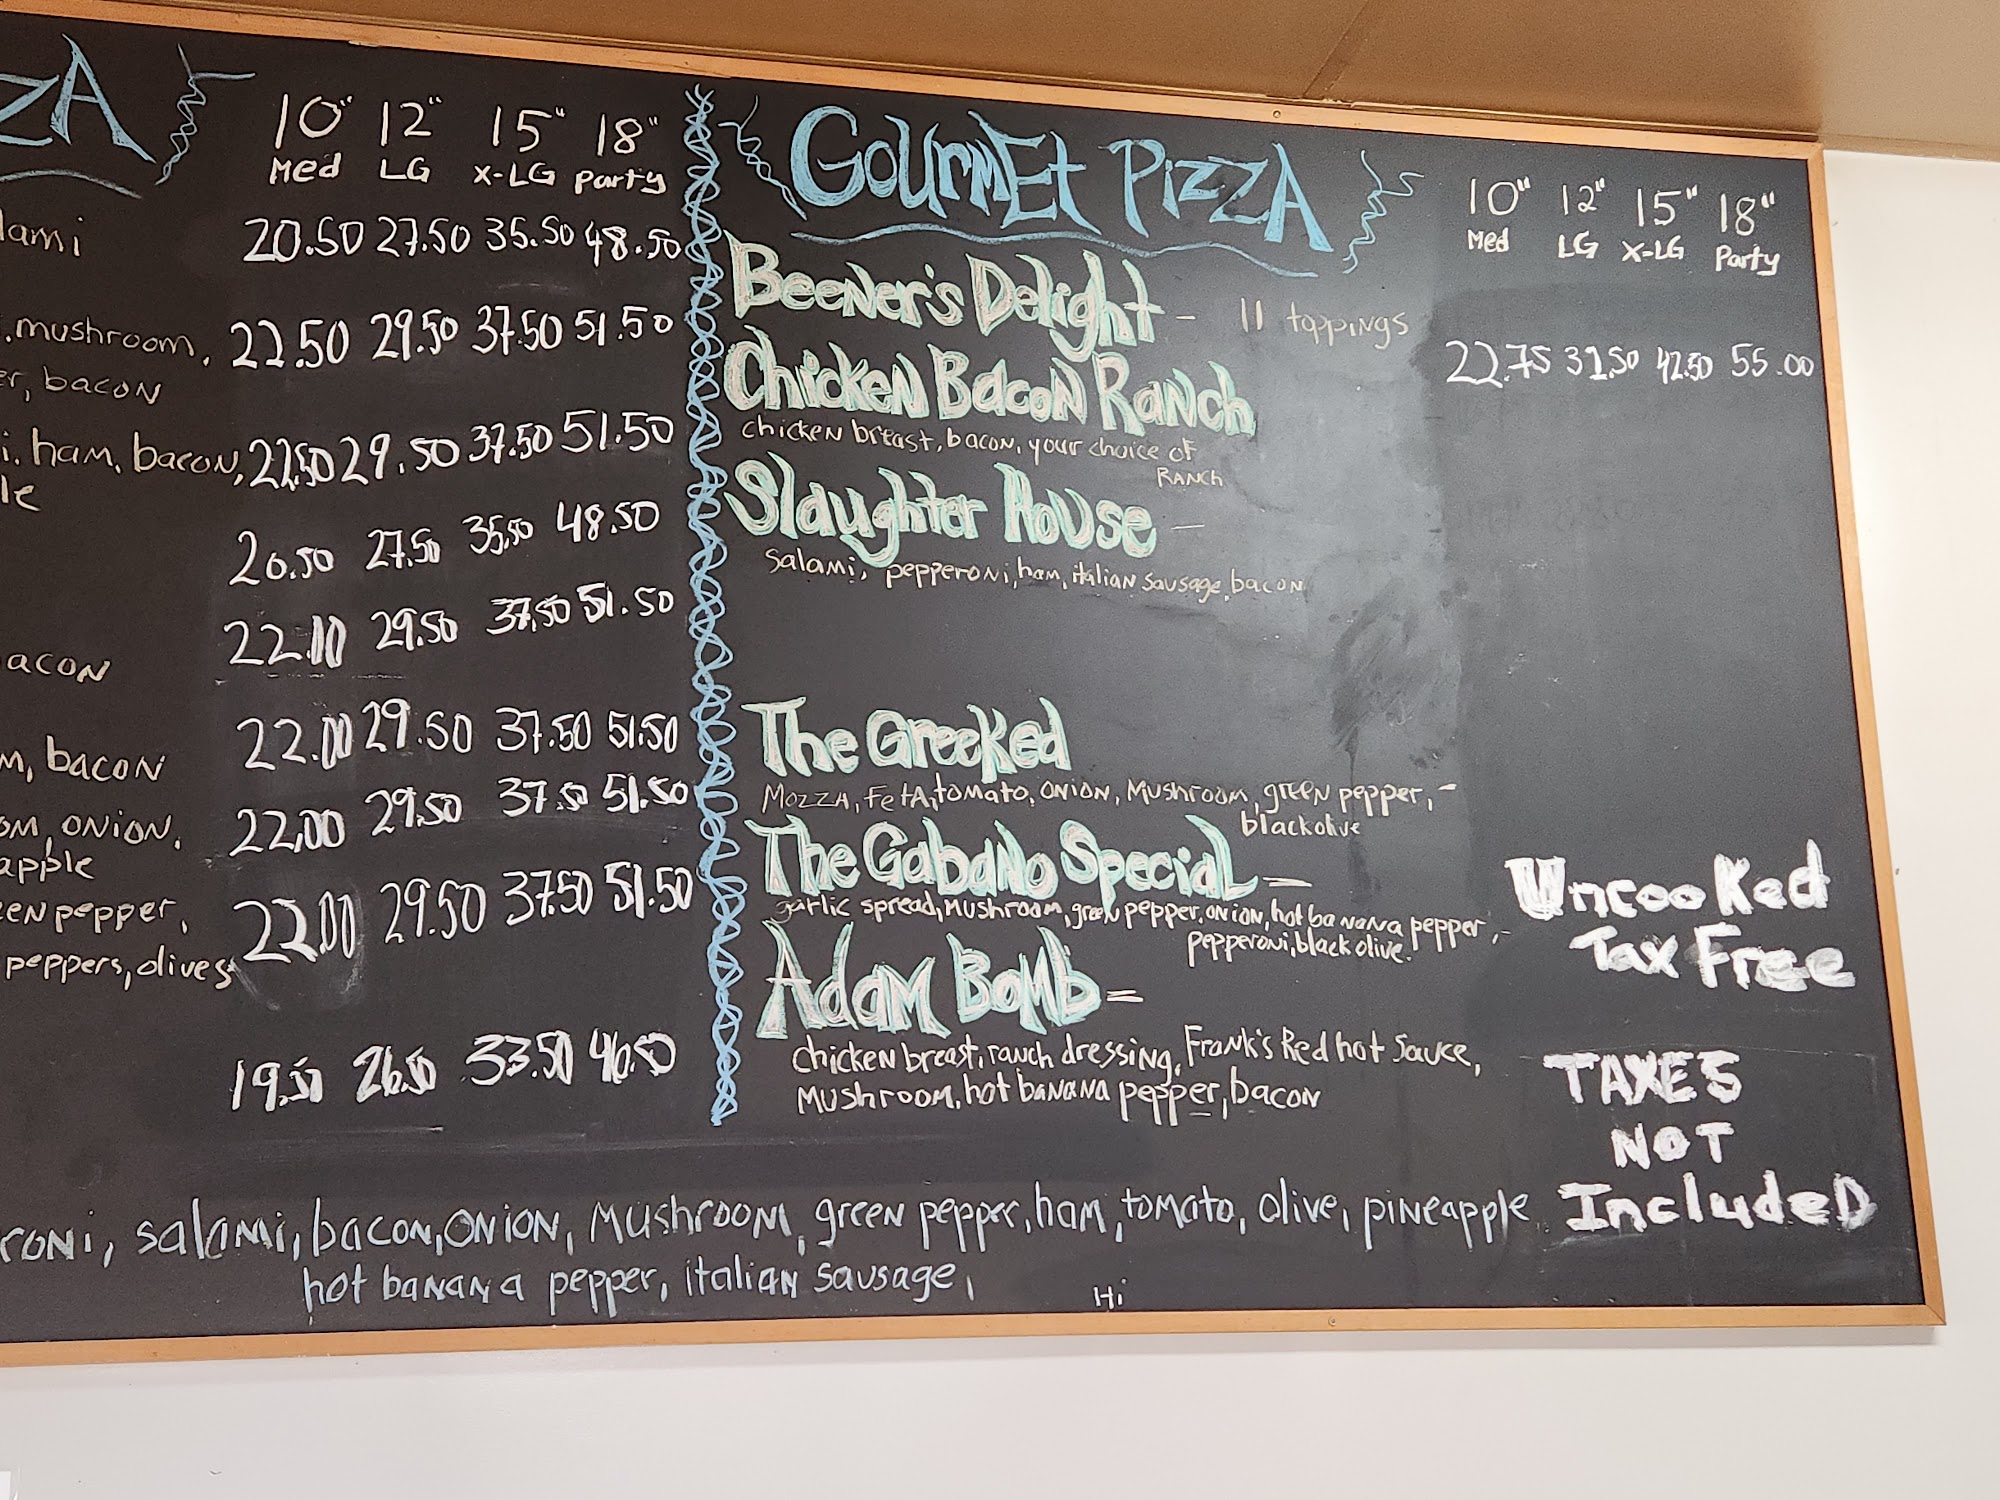 ZZA
10" 12" 15" 18"
Med LG X-LG Party
lami 20.50 27.50 35.50 48.50
mushroom, 22.50 29.50 37.50 51.50
er, bacon
i, ham, bacon, 22.50 29.50 37.50 51.50
le
20.50 27.50 35.50 48.50
22.00 29.50 37.50 51.50
acon
22.00 29.50 37.50 51.50
m, bacon
22.00 29.50 37.50 51.50
om, onion,
apple
een pepper, 22.00 29.50 37.50 51.50
peppers, olives
19.50 26.50 33.50 46.50
Gourmet Pizza
10" 12" 15" 18"
Med LG X-LG Party
Beener's Delight - 11 toppings
22.75 31.50 42.50 55.00
Chicken Bacon Ranch
chicken breast, bacon, your choice of
Ranch
Slaughter House -
salami, pepperoni, ham, italian sausage, bacon
The Greeked
Mozza, Feta, tomato, onion, Mushroom, green pepper, -
black olive
The Gabano Special -
garlic spread, mushroom, green pepper, onion, hot banana pepper, -
pepperoni, black olive.
Adam Bomb =
chicken breast, ranch dressing, Frank's Red hot Sauce,
Mushroom, hot banana pepper, bacon
Uncooked
Tax Free
TAXES
NOT
IncludeD
roni, salami, bacon, onion, Mushroom, green pepper, ham, tomato, olive, pineapple
hot banana pepper, italian sausage,
Hi